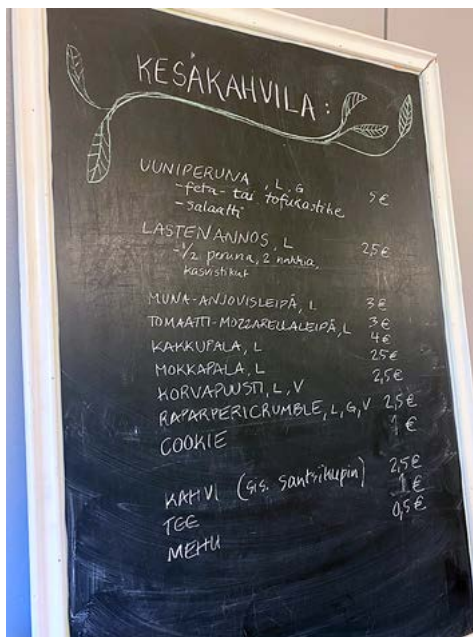 KESÄKAHVILA:
UUNIPERUNA, L, G 5€
-feta- tai tofukastike
-salaatti
LASTENANNOS, L 2,5€
-1/2 peruna, 2 nakkia,
kasvistikut
MUNA-ANJOVISLEIPÄ, L 3€
TOMAATTI-MOZZARELLALEIPÄ, L 3€
KAKKUPALA, L 4€
MOKKAPALA, L 25€
KORVAPUUSTI, L, V 2,5€
RAPARPERICRUMBLE, L, G, V 2,5€
COOKIE 1€
KAHVI (sis. santsikupin) 2,5€
TEE 1€
MEHU 0,5€